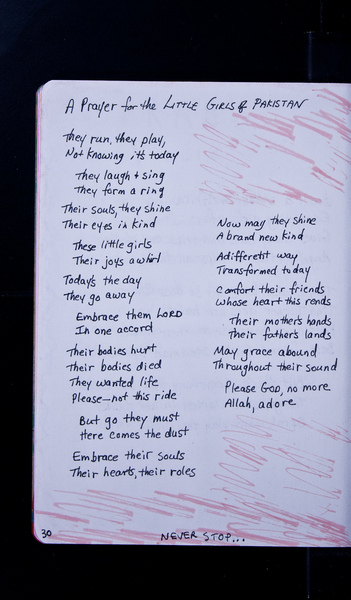 A Prayer for the LITTLE GIRLS of PAKISTAN
They run, they play,
Not knowing it's today
They laugh + sing
They form a ring
Their souls, they shine
Their eyes in kind
These little girls
Their joys awhirl
Today's the day
They go away
Embrace them LORD
In one accord
Their bodies hurt
Their bodies died
They wanted life
Please—not this ride
But go they must
Here comes the dust
Embrace their souls
Their hearts, their roles
Now may they shine
A brand new kind
A different way
Transformed today
Comfort their friends
Whose heart this rends
Their mother's hands
Their father's lands
May grace abound
Throughout their sound
Please GOD, no more
Allah, adore
30
NEVER STOP...